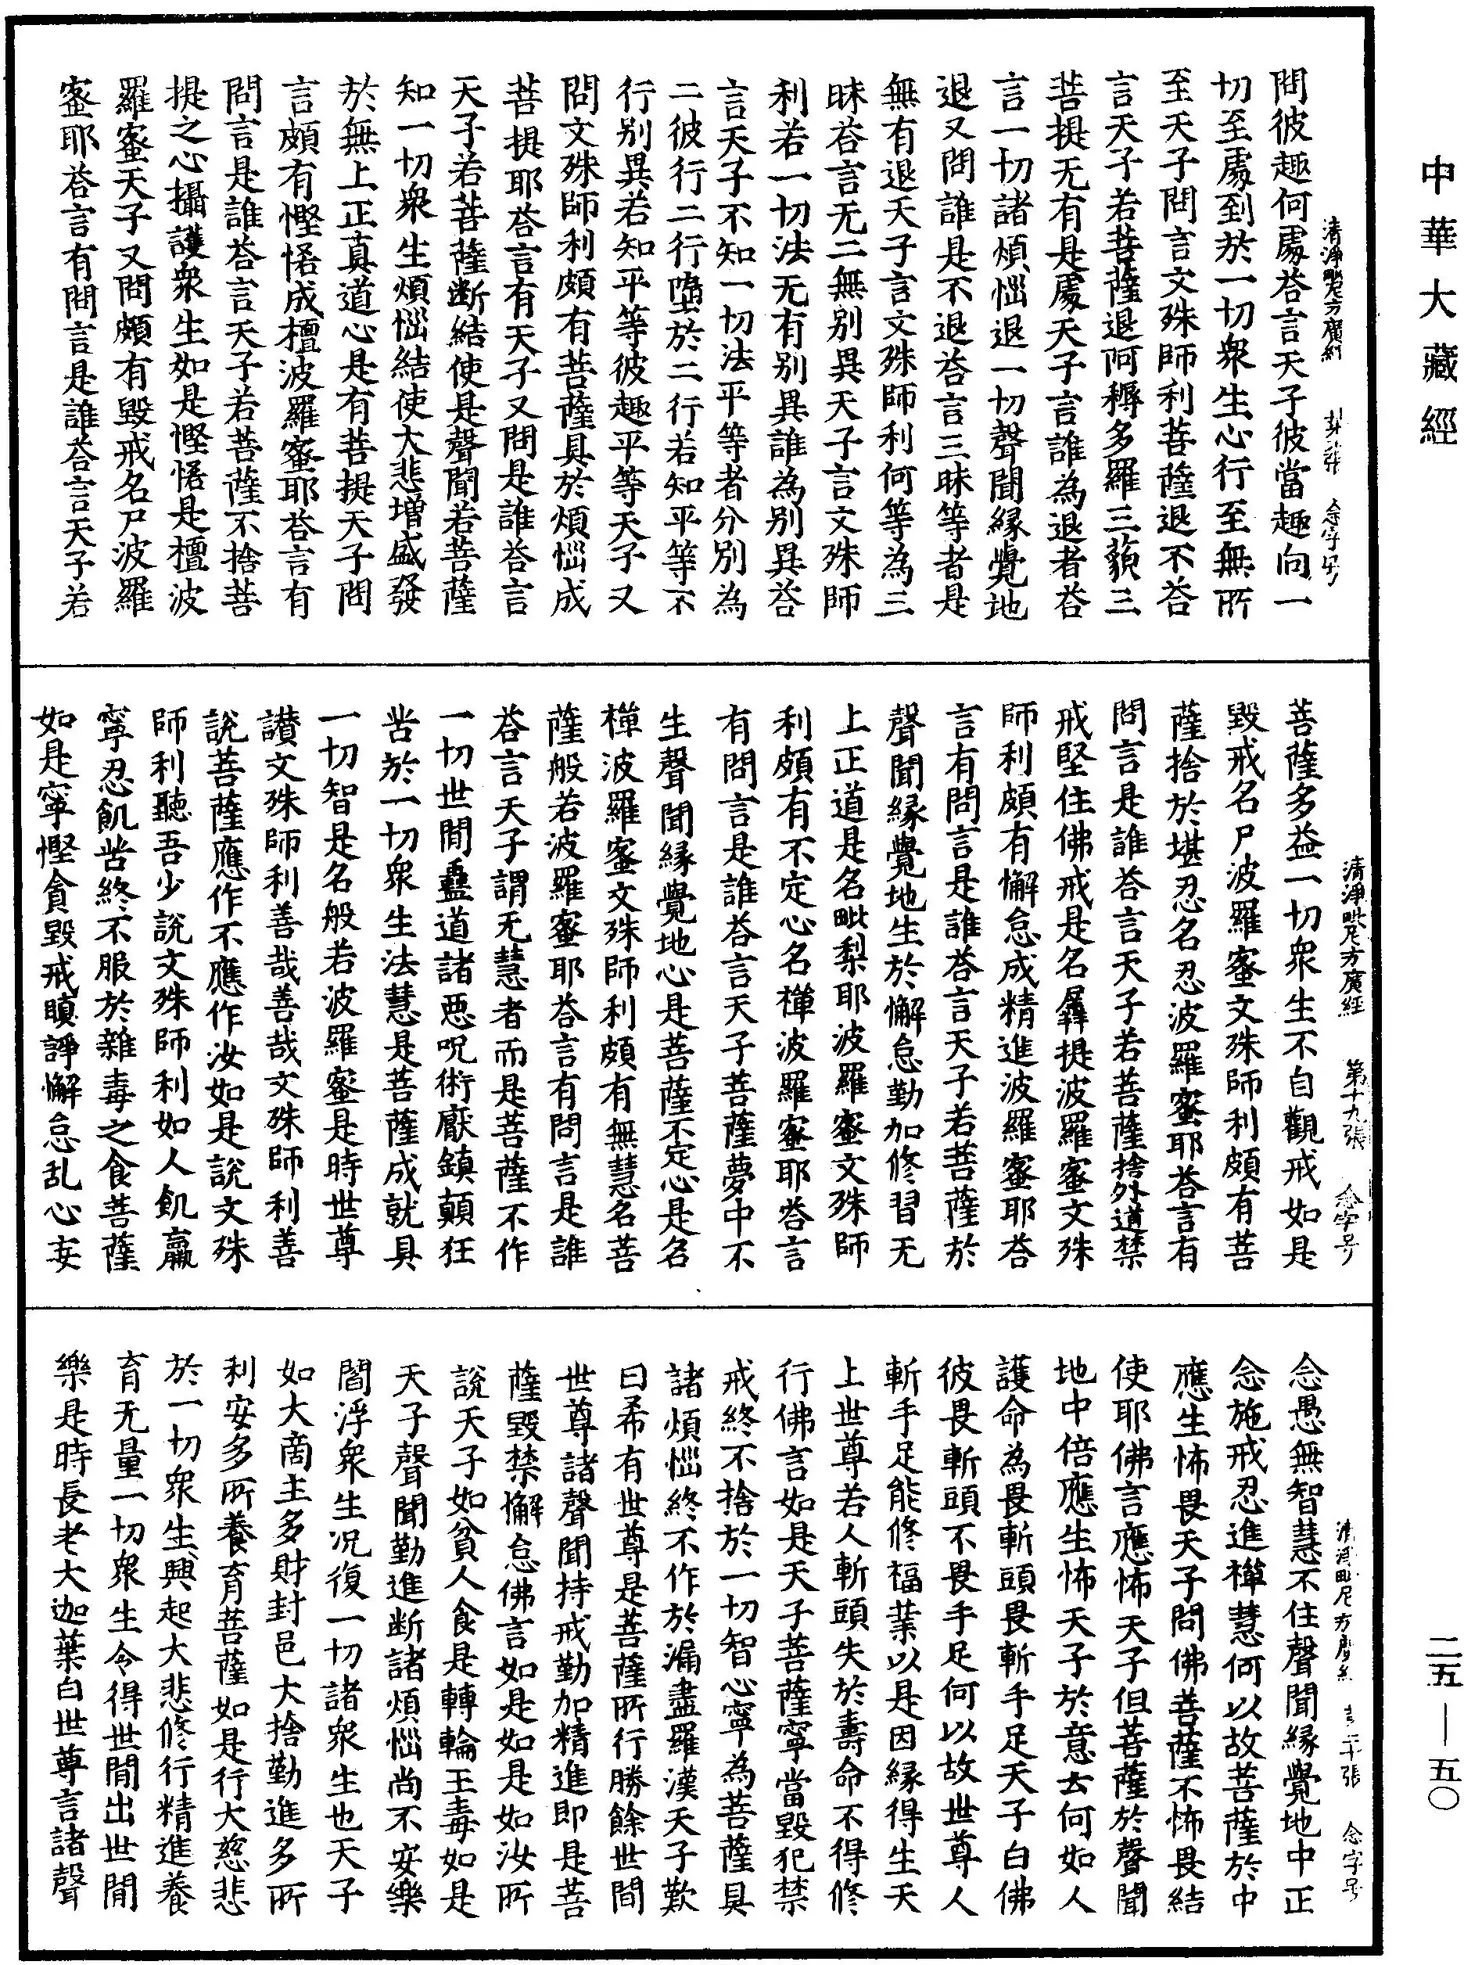 中華大藏經
清淨毗尼方廣經 念字号
問彼趣何處荅言天子彼當趣向一
切至處到於一切衆生心行至無所
至天子問言文殊師利菩薩退不荅
言天子若菩薩退阿耨多羅三藐三
菩提无有是處天子言誰為退者荅
言一切諸煩惱退一切聲聞緣覺地
退又問誰是不退荅言三昧等者是
無有退天子言文殊師利何等為三
昧荅言无二無別異天子言文殊師
利若一切法无有別異誰為別異荅
言天子不知一切法平等者分別為
二彼行二行墮於二行若知平等不
行別異若知平等彼趣平等天子又
問文殊師利頗有菩薩具於煩惱成
菩提耶荅言有天子又問是誰荅言
天子若菩薩断結使是聲聞若菩薩
知一切衆生煩惱結使大悲增盛發
於無上正真道心是有菩提天子問
言頗有慳悋成檀波羅蜜耶荅言有
問言是誰荅言天子若菩薩不捨菩
提之心攝護衆生如是慳悋是檀波
羅蜜天子又問頗有毀戒名尸波羅
蜜耶荅言有問言是誰荅言天子若
清淨毗尼方廣經 第十九張 念字号
菩薩多益一切衆生不自觀戒如是
毀戒名尸波羅蜜文殊師利頗有菩
薩捨於堪忍名忍波羅蜜耶荅言有
問言是誰荅言天子若菩薩捨外道禁
戒堅住佛戒是名羼提波羅蜜文殊
師利頗有懈怠成精進波羅蜜耶荅
言有問言是誰荅言天子若菩薩於
聲聞緣覺地生於懈怠勤加修習无
上正道是名毗梨耶波羅蜜文殊師
利頗有不定心名禪波羅蜜耶荅言
有問言是誰荅言天子菩薩夢中不
生聲聞緣覺地心是菩薩不定心是名
禪波羅蜜文殊師利頗有無慧名菩
薩般若波羅蜜耶荅言有問言是誰
荅言天子謂无慧者而是菩薩不作
一切世間蠱道諸惡呪術厭鎮顛狂
苦於一切衆生法慧是菩薩成就具
一切智是名般若波羅蜜是時世尊
讃文殊師利善哉善哉文殊師利善
說菩薩應作不應作汝如是說文殊
師利聽吾少說文殊師利如人飢羸
寧忍飢苦終不服於雜毒之食菩薩
如是寧慳貪毀戒瞋諍懈怠乱心妄
清淨毗尼方廣經 二十張 念字号
念愚無智慧不住聲聞緣覺地中正
念施戒忍進禪慧何以故菩薩於中
應生怖畏天子問佛菩薩不怖畏結
使耶佛言應怖天子但菩薩於聲聞
地中倍應生怖天子於意云何如人
護命為畏斬頭畏斬手足天子白佛
彼畏斬頭不畏手足何以故世尊人
斬手足能修福業以是因緣得生天
上世尊若人斬頭失於壽命不得修
行佛言如是天子菩薩寧當毀犯禁
戒終不捨於一切智心寧為菩薩具
諸煩惱終不作於漏盡羅漢天子歎
曰希有世尊是菩薩所行勝餘世間
世尊諸聲聞持戒勤加精進即是菩
薩毀禁懈怠佛言如是如是如汝所
說天子如貧人食是轉輪王毒如是
天子聲聞勤進断諸煩惱尚不安樂
閻浮衆生况復一切諸衆生也天子
如大商主多財封邑大捨勤進多所
利安多所養育菩薩如是行大慈悲
於一切衆生興起大悲修行精進養
育无量一切衆生令得世間出世間
樂是時長老大迦葉白世尊言諸聲
二五—五〇